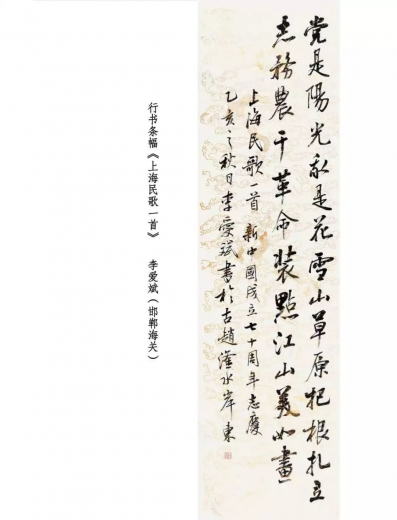 党是陽光我是花雪山草原把根扎立
志務農干革命裝點江山美如畫
上海民歌一首 新中國成立七十周年志慶
己亥之秋日李愛斌書於古趙滏水岸東
行书条幅《上海民歌一首》 李爱斌（邯郸海关）